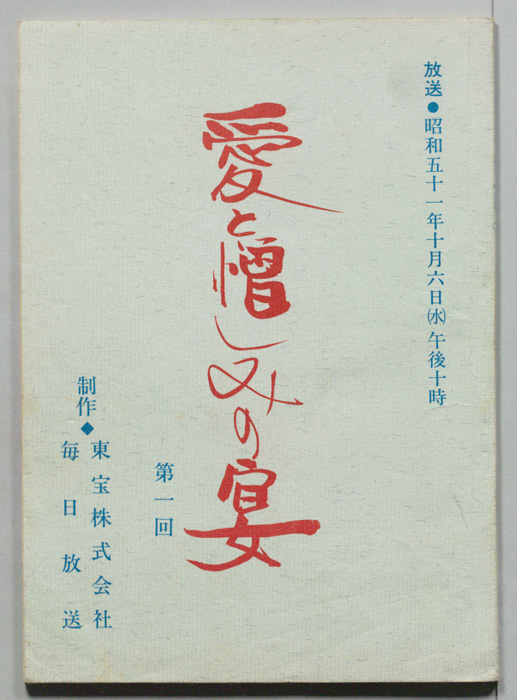 放送●昭和五十一年十月六日㈬午後十時
愛と憎しみの宴
第一回
制作◆東宝株式会社
毎日放送